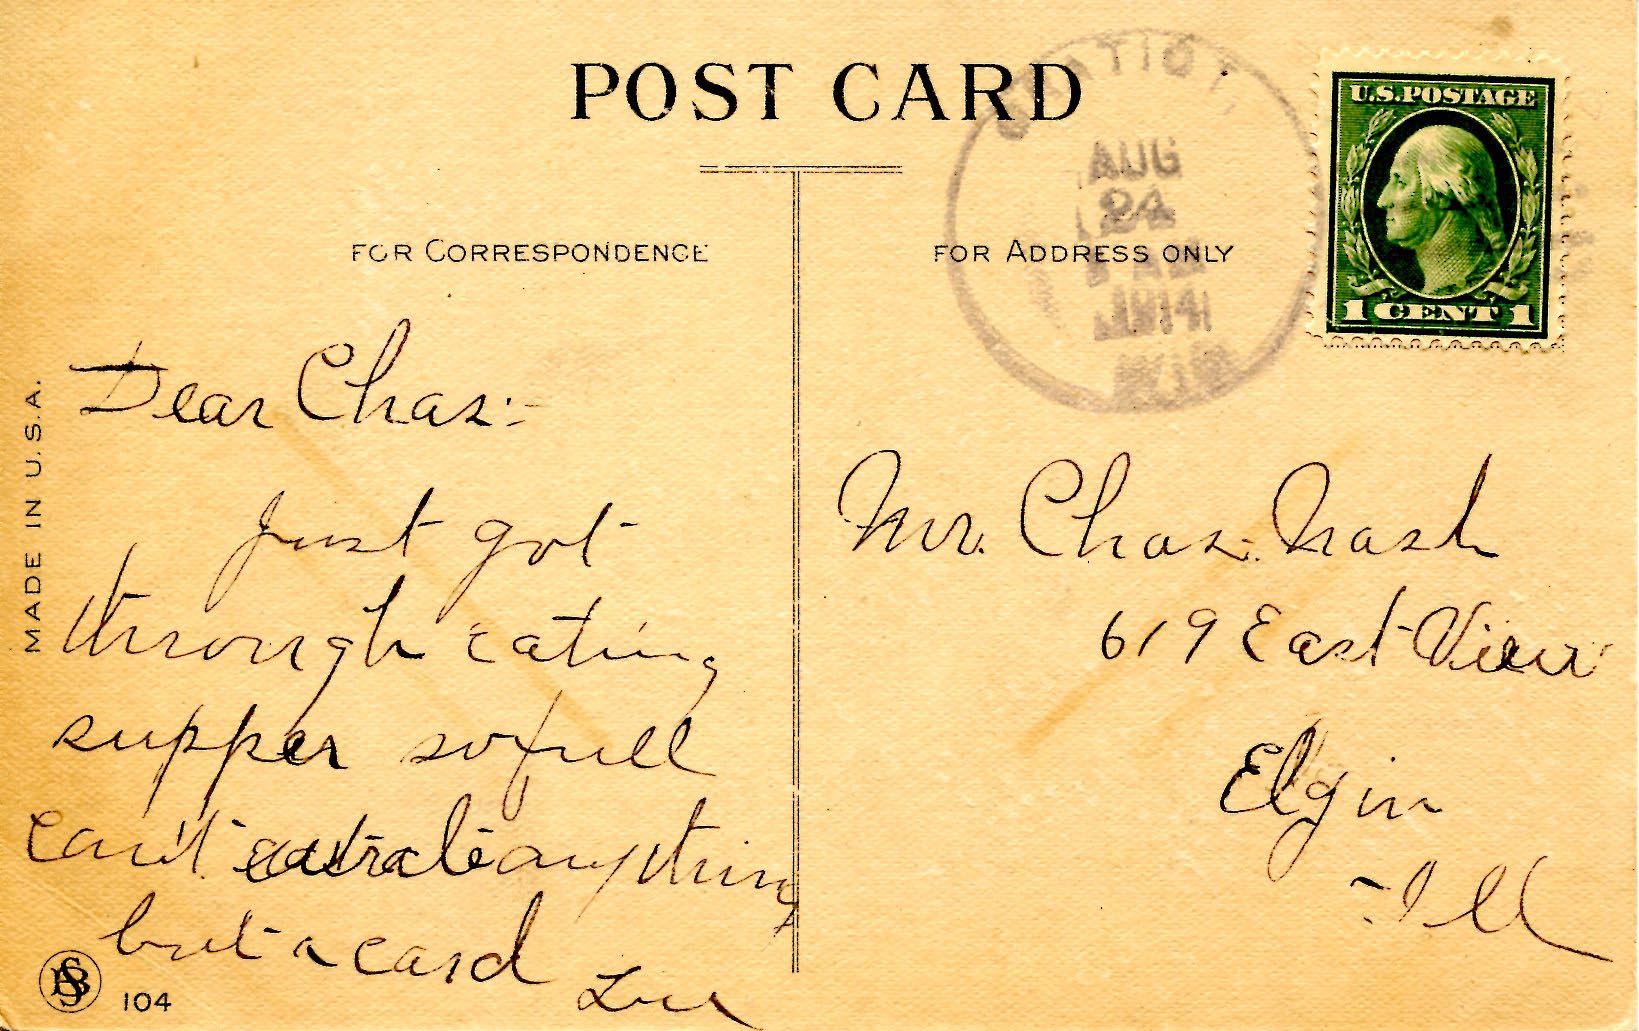 POST CARD
FOR CORRESPONDENCE
FOR ADDRESS ONLY
U.S. POSTAGE
1 CENT 1
AUG
24
1914
MADE IN U.S.A.
Dear Chas:-
Just got
through eating
supper so full
can't anything
but a card
Mr. Chas. Nash
619 East View
Elgin
Ill
104